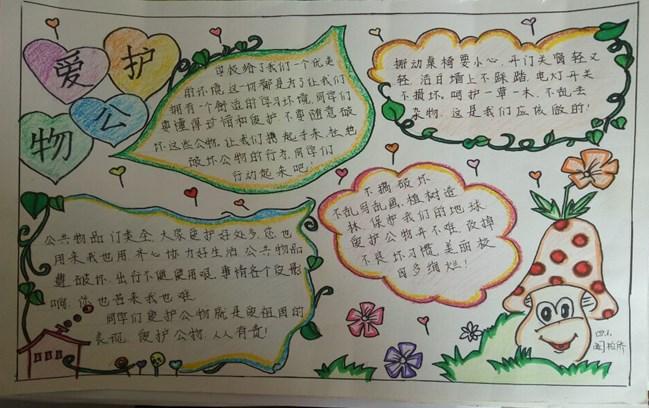 爱护
公物
学校给了我们一个优美
的环境,这一切都是为了让我们
拥有一个舒适的学习环境,同学们
要懂得珍惜和爱护,不要随意破
坏这些公物,让我们携起手来,杜绝
破坏公物的行为,同学们
行动起来吧!
搬动桌椅要小心,开门关窗轻又
轻,洁白墙上不踩踏,电灯开关
不损坏,呵护一草一木,不乱丢
杂物,这是我们应该做的!
公共物品门类全,大家爱护好处多,您也
用来我也用,齐心协力好生活,公共物品
费破坏,出行不便使用艰,事情各个没形
响,你也苦来我也难
同学们爱护公物就是爱祖国的
表现,爱护公物,人人有责!
不搞破坏
不乱写乱画,植树造
林,保护我们的地球
爱护公物并不难,改掉
不良坏习惯,美丽校
园多绚烂!
四.1.